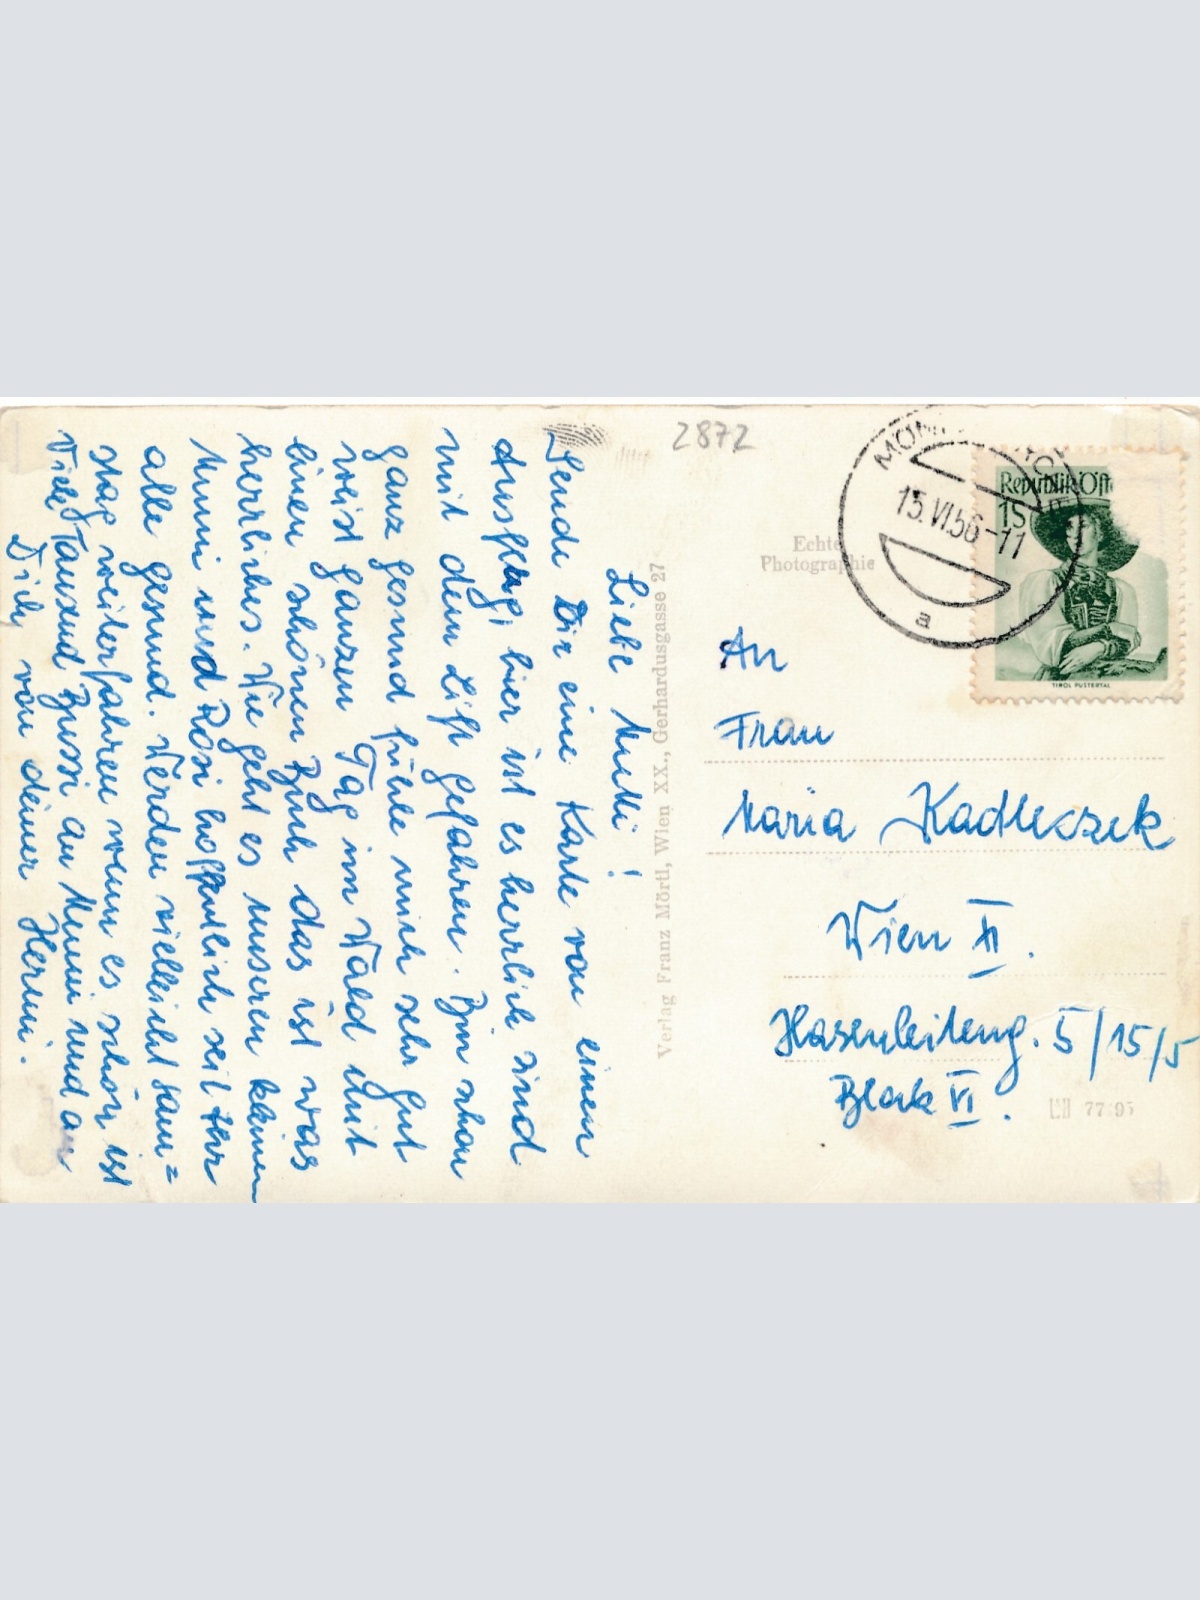 2872
Liebe Mutti!
Sende Dir eine Karte von einen
Ausflug, hier ist es herrlich sind
mit dem Lift gefahren. Bin schon
ganz gesund fühle mich sehr gut
weist ganzen Tag im Wald mit
einen schönen Buch das ist was
herrliches. Wie geht es unseren kleinen
Munni und Rosi hoffentlich seit Ihr
alle gesund. Werden vielleicht Sam=
stag weiterfahren wenn es schön ist
Viele Tausend Bussi an Munni und an
Dich, von deiner Hermi.
Verlag Franz Mörtl, Wien XX., Gerhardusgasse 27
Echte
Photographie
15.VI.56-11
a
Republik Öst
1S
TIROL PUSTERTAL
An
Frau
Maria Kadleczek
Wien XI.
Hasenleiteng. 5/15/5
Block VI.
77 95